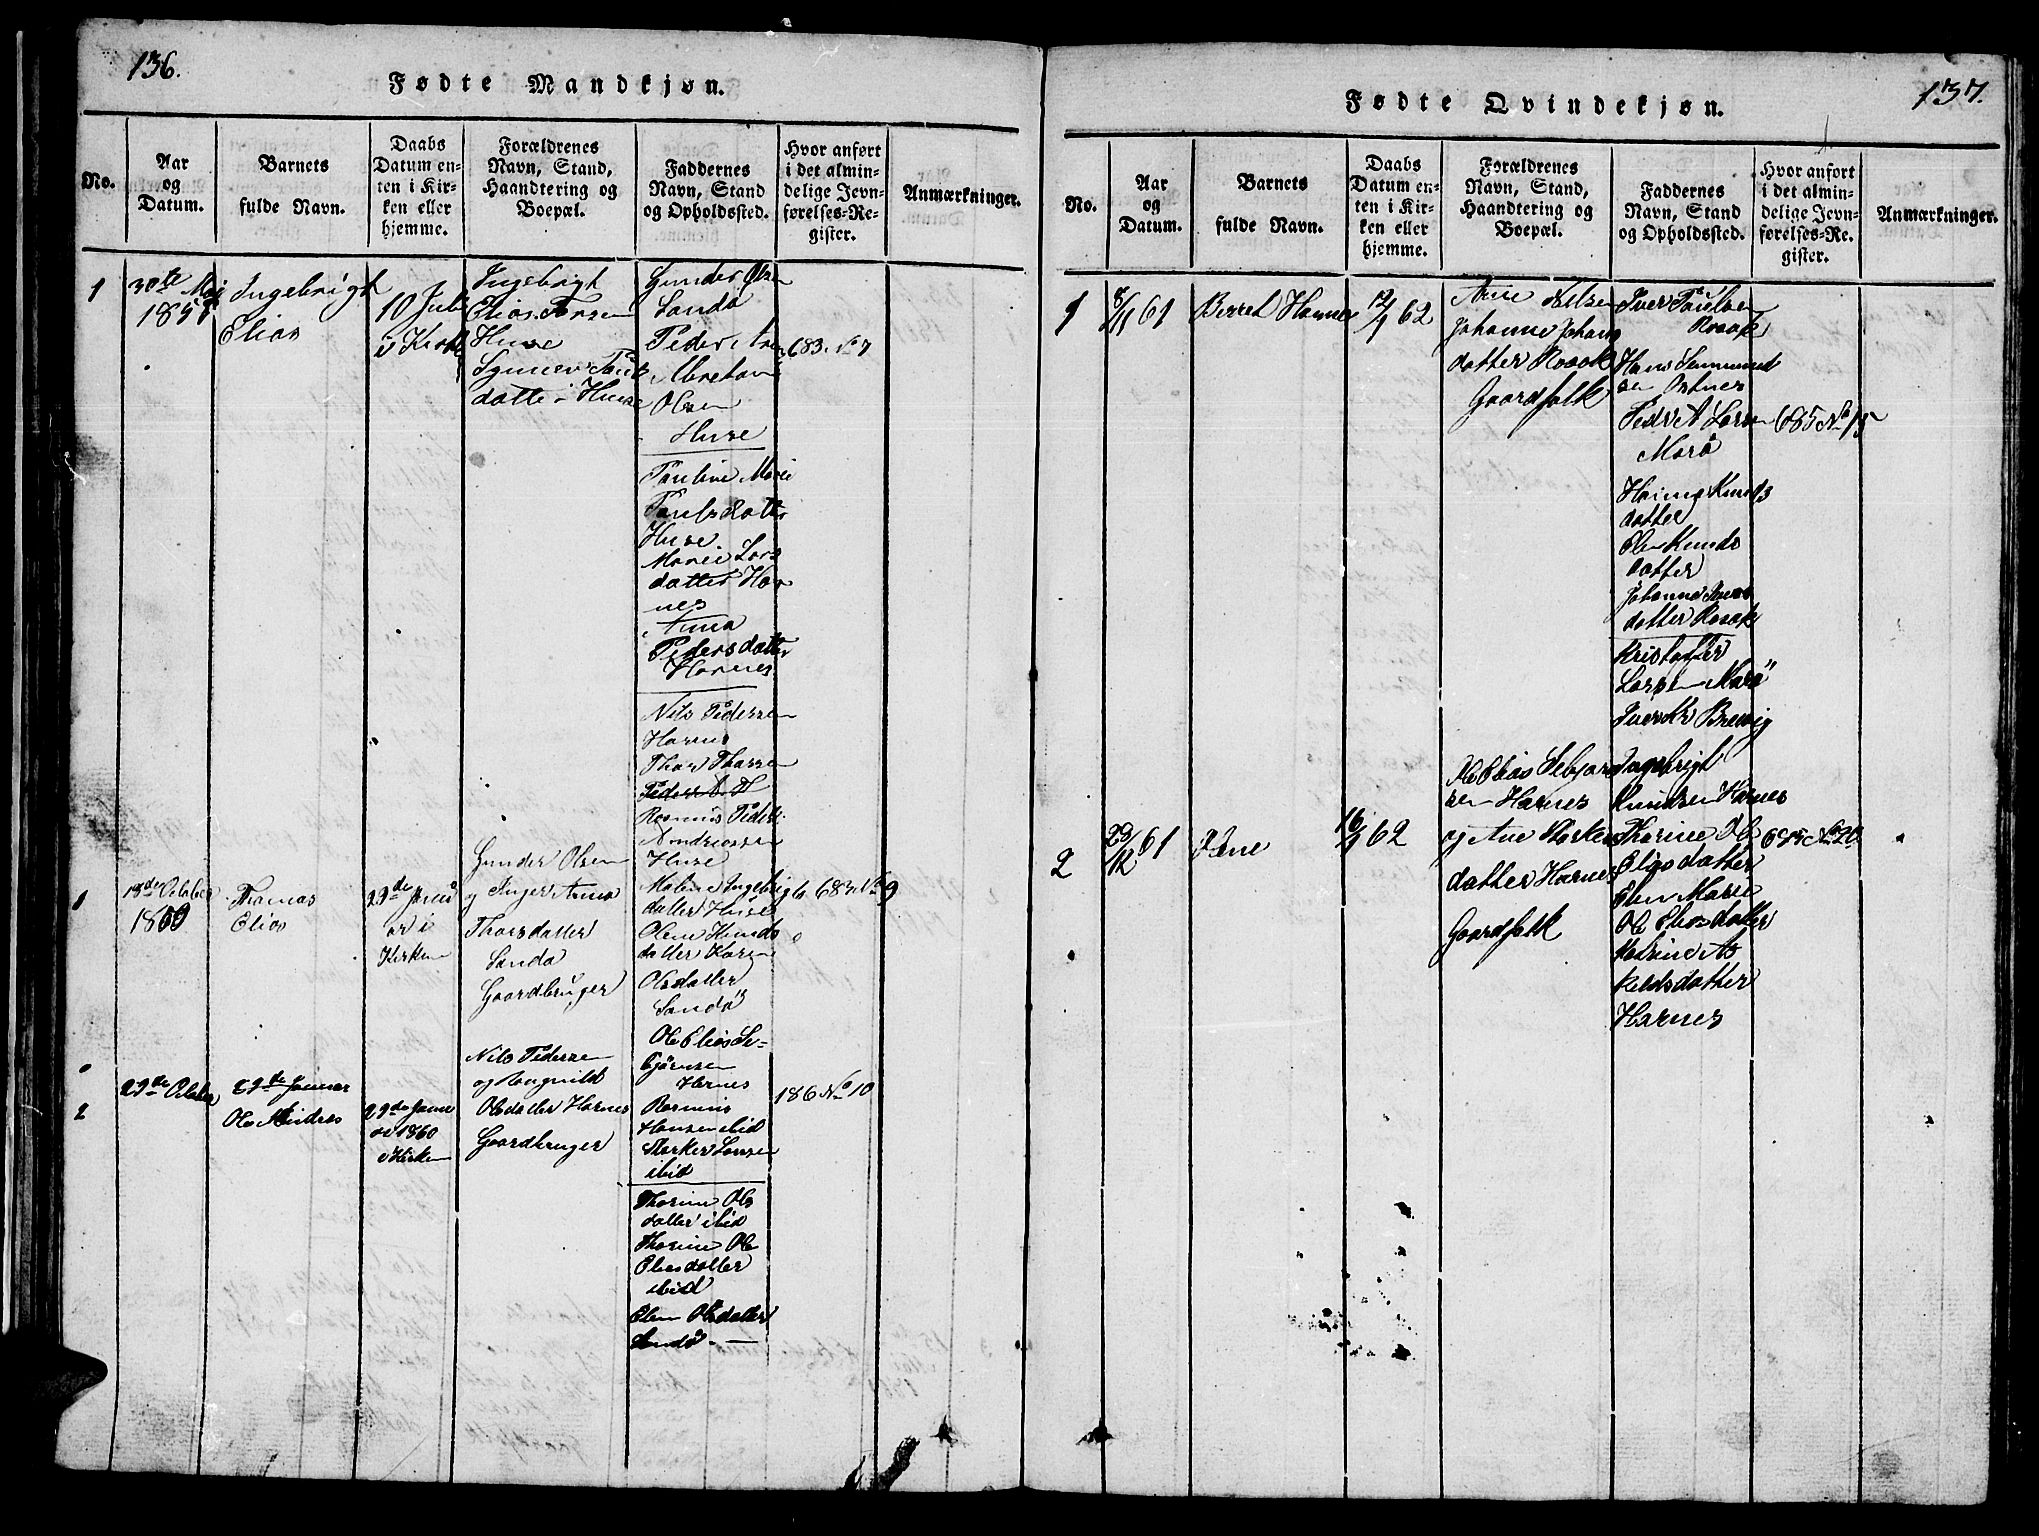 136.
Fødte Mandkjøn.
No.
Aar
og
Datum.
Barnets
fulde Navn.
Daabs
Datum en-
ten i Kir-
ken eller
hjemme.
Forældrenes
Navn, Stand,
Haandtering og
Boepæl.
Faddernes
Navn, Stand
og Opholdssted.
Hvor anført
i det almin-
delige Jevn-
førelses-Re-
gister.
Anmærkninger.
1
30te Maj
1857
Ingebrigt
Elias
10 Juli
i Kirke
Ingebrigt
Elias
Huse
datte i Huse
Gunder Olsen
Sandø
Peder
Olsen
Huse
Pauline Marie
Paulsdatter
Huse
Marie Lars
datter Har
nes
Anna
Pedersdatter
Harnes
Nils Pedersen
Harnes
Thor Thorsen
Rasmus Peder
Andreassen
Huse
683 No 7
1
18de Octaber
1860
Thomas
Elias
29de Janu
ar i
Kirken
Gunder Olsen
og Inger Anna
Thorsdatter
Sandø
Gaardbruger
Malene Ingebrigts
datter Huse
Olene Knuds
datter Karen
Olsdatter
Sandø
683 No 9
2
29de Octaber
29de Januar
Ole Andreas
29de Janu
ar 1860
i Kirken
Nils Pedersen
og Ragnild
Olsdatter Harnes
Gaardbruger
Ole Elias Se-
bjørnsen
Harnes
Rasmus
Hansen ibid
Storker Larsen
ibid
Thorine Ols
datter ibid
Thorine Ole
Eliasdatter
ibid
Elen Olsdatter
Sandø
186 No 10
137.
Fødte Qvindekjøn.
No.
Aar
og
Datum.
Barnets
fulde Navn.
Daabs
Datum en-
ten i Kir-
ken eller
hjemme.
Forældrenes
Navn, Stand,
Haandtering og
Boepæl.
Faddernes
Navn, Stand
og Opholdssted.
Hvor anført
i det almin-
delige Jevn-
førelses-Re-
gister.
Anmærkninger.
1
8/11 61
Berret Hanne
12/1 62
Johanne Johans
datter Roaak
Gaardfolk
Iver Poulsen
Roaak
Hans
sen
Peder A Larsen
Marø
Knuds
datter
Olen Knuds
datter
Johanne Ivers
datter Roaak
Kristoffer
Larsen Marø
Iver Kr Brevig
685 No 15
2
23/12 61
16/1 62
Ole Elias Sebjørn
sen Harnes
og Ane Storkers
datter Harnes
Gaardfolk
Ingebrigt
Knudsen Harnes
Thorine Ole
Eliasdatter
Elen Marie
Ole Eliasdatter
Katrine As
keldsdatter
Harnes
685 No 20